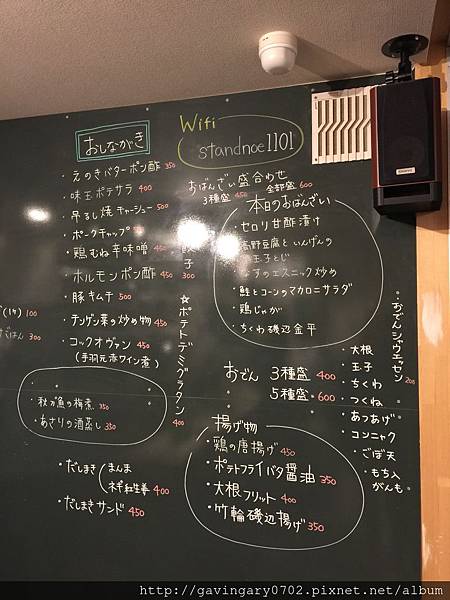 おしながき
・えのきバターポン酢 350
・味玉ポテサラ 400
・吊るし焼チャーシュー 500
・ポークチャップ
・鶏むね辛味噌 450
・ホルモンポン酢 450
・豚キムチ 500
・チンゲン菜の炒め物 450
・コックオヴァン 450
(手羽元赤ワイン煮)
100
300
・秋刀魚の梅煮 350
・あさりの酒蒸し 350
・だしまき
まんま
ネギ紅生姜 400
・だしまきサンド 450
餃子
☆ポテトデミグラタン 400
Wifi
standnoe1101
おばんざい盛合わせ
3種盛 450 全部盛 600
本日のおばんざい
・セロリ甘酢漬け
・高野豆腐といんげんの
玉子とじ
・なすのエスニック炒め
・鮭とコーンのマカロニサラダ
・鶏じゃが
・ちくわ磯辺金平
おでん 3種盛 400
5種盛 600
揚げ物
・鶏の唐揚げ 450
・ポテトフライバタ醤油 350
・大根フリット 400
・竹輪磯辺揚げ 350
・おでんシャウエッセン 200
・大根
・玉子
・ちくわ
・つくね
・あつあげ
・コンニャク
・ごぼ天
・もち入
がんも
http://gavingary0702.pixnet.net/album